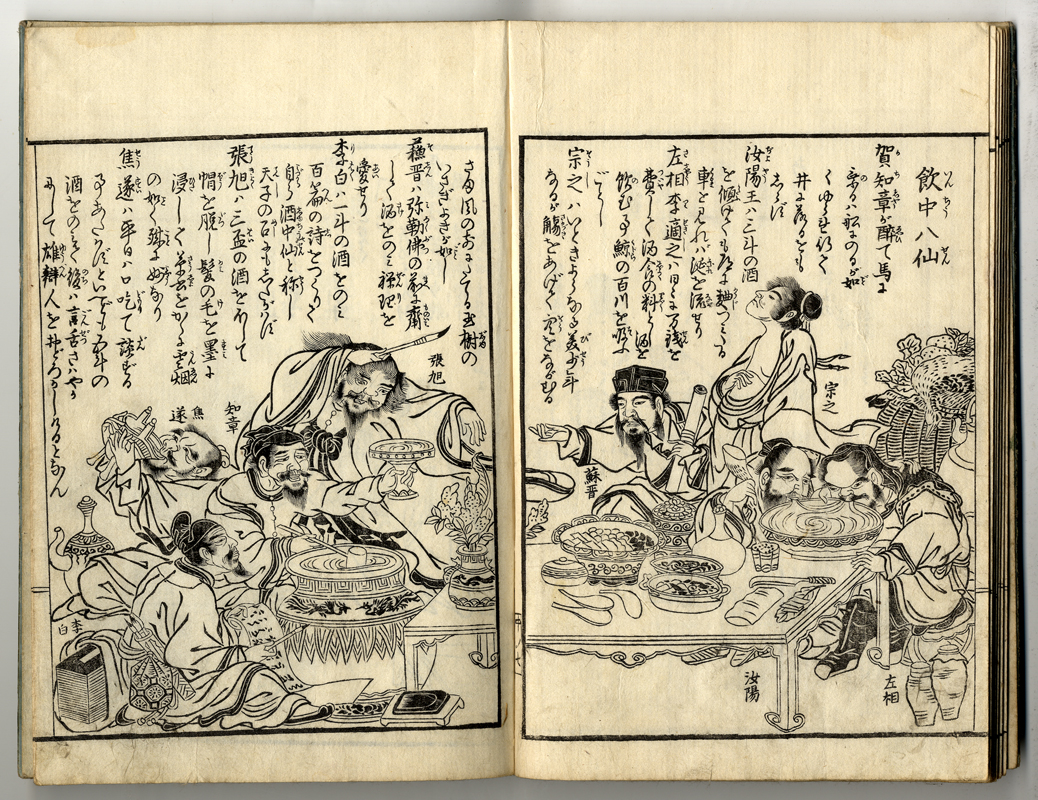 飲中八仙
賀知章が酔て馬に
乗るハ船にのるが如
くゆらめきて
井に落るとも
しらず
汝陽王ハ三斗の酒
を傾けても道に麹つめる
車を見れバ涎を流せり
左相李適之ハ日々に万銭を
費して酒食の料とし酒を
飲む事鯨の百川を吸ふ
ごとし
宗之ハいさぎよき美少年
なるが觴をあげて空をながむる
さま風のおもてにたてる玉樹の
いさぎよきが如し
蘇晋ハ弥勒佛の前に齋
して酒をのミ禅理を
愛せり
李白ハ一斗の酒をのミ
百篇の詩をつくりて
自ら酒中仙と称し
天子の召にもしたがはず
張旭ハ三盃の酒をのミて
帽を脱し髪の毛を墨に
浸して草書をかくに雲烟
の如く
焦遂ハ平日ハ口吃て談ずる
事あたはずといへども五斗の
酒をのミて後ハ言舌さハやか
にして雄辯人をおどろかしけるとなん
宗之
蘇晋
汝陽
左相
張旭
知章
焦遂
李白